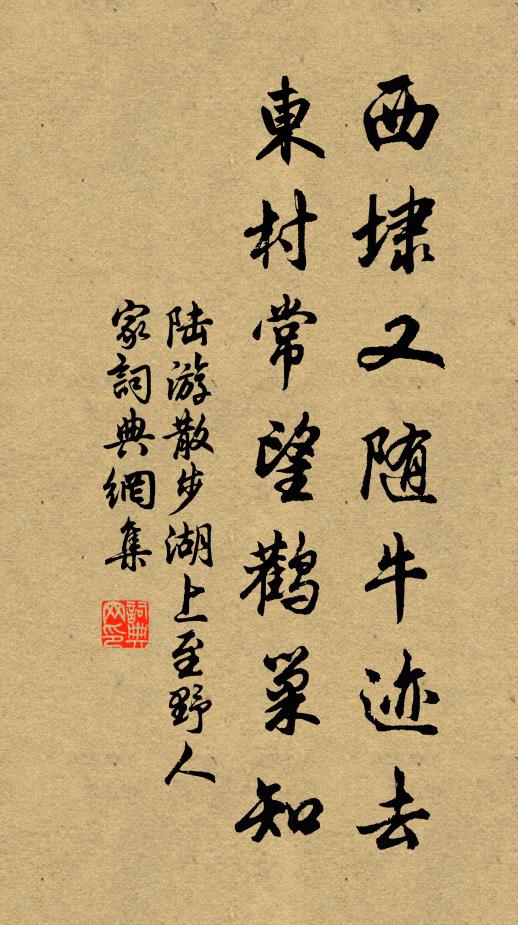 西埭又随牛迹去
東村常望鸛巢知
陆游散步湖上至野人
家詞典網集
詞典
网印